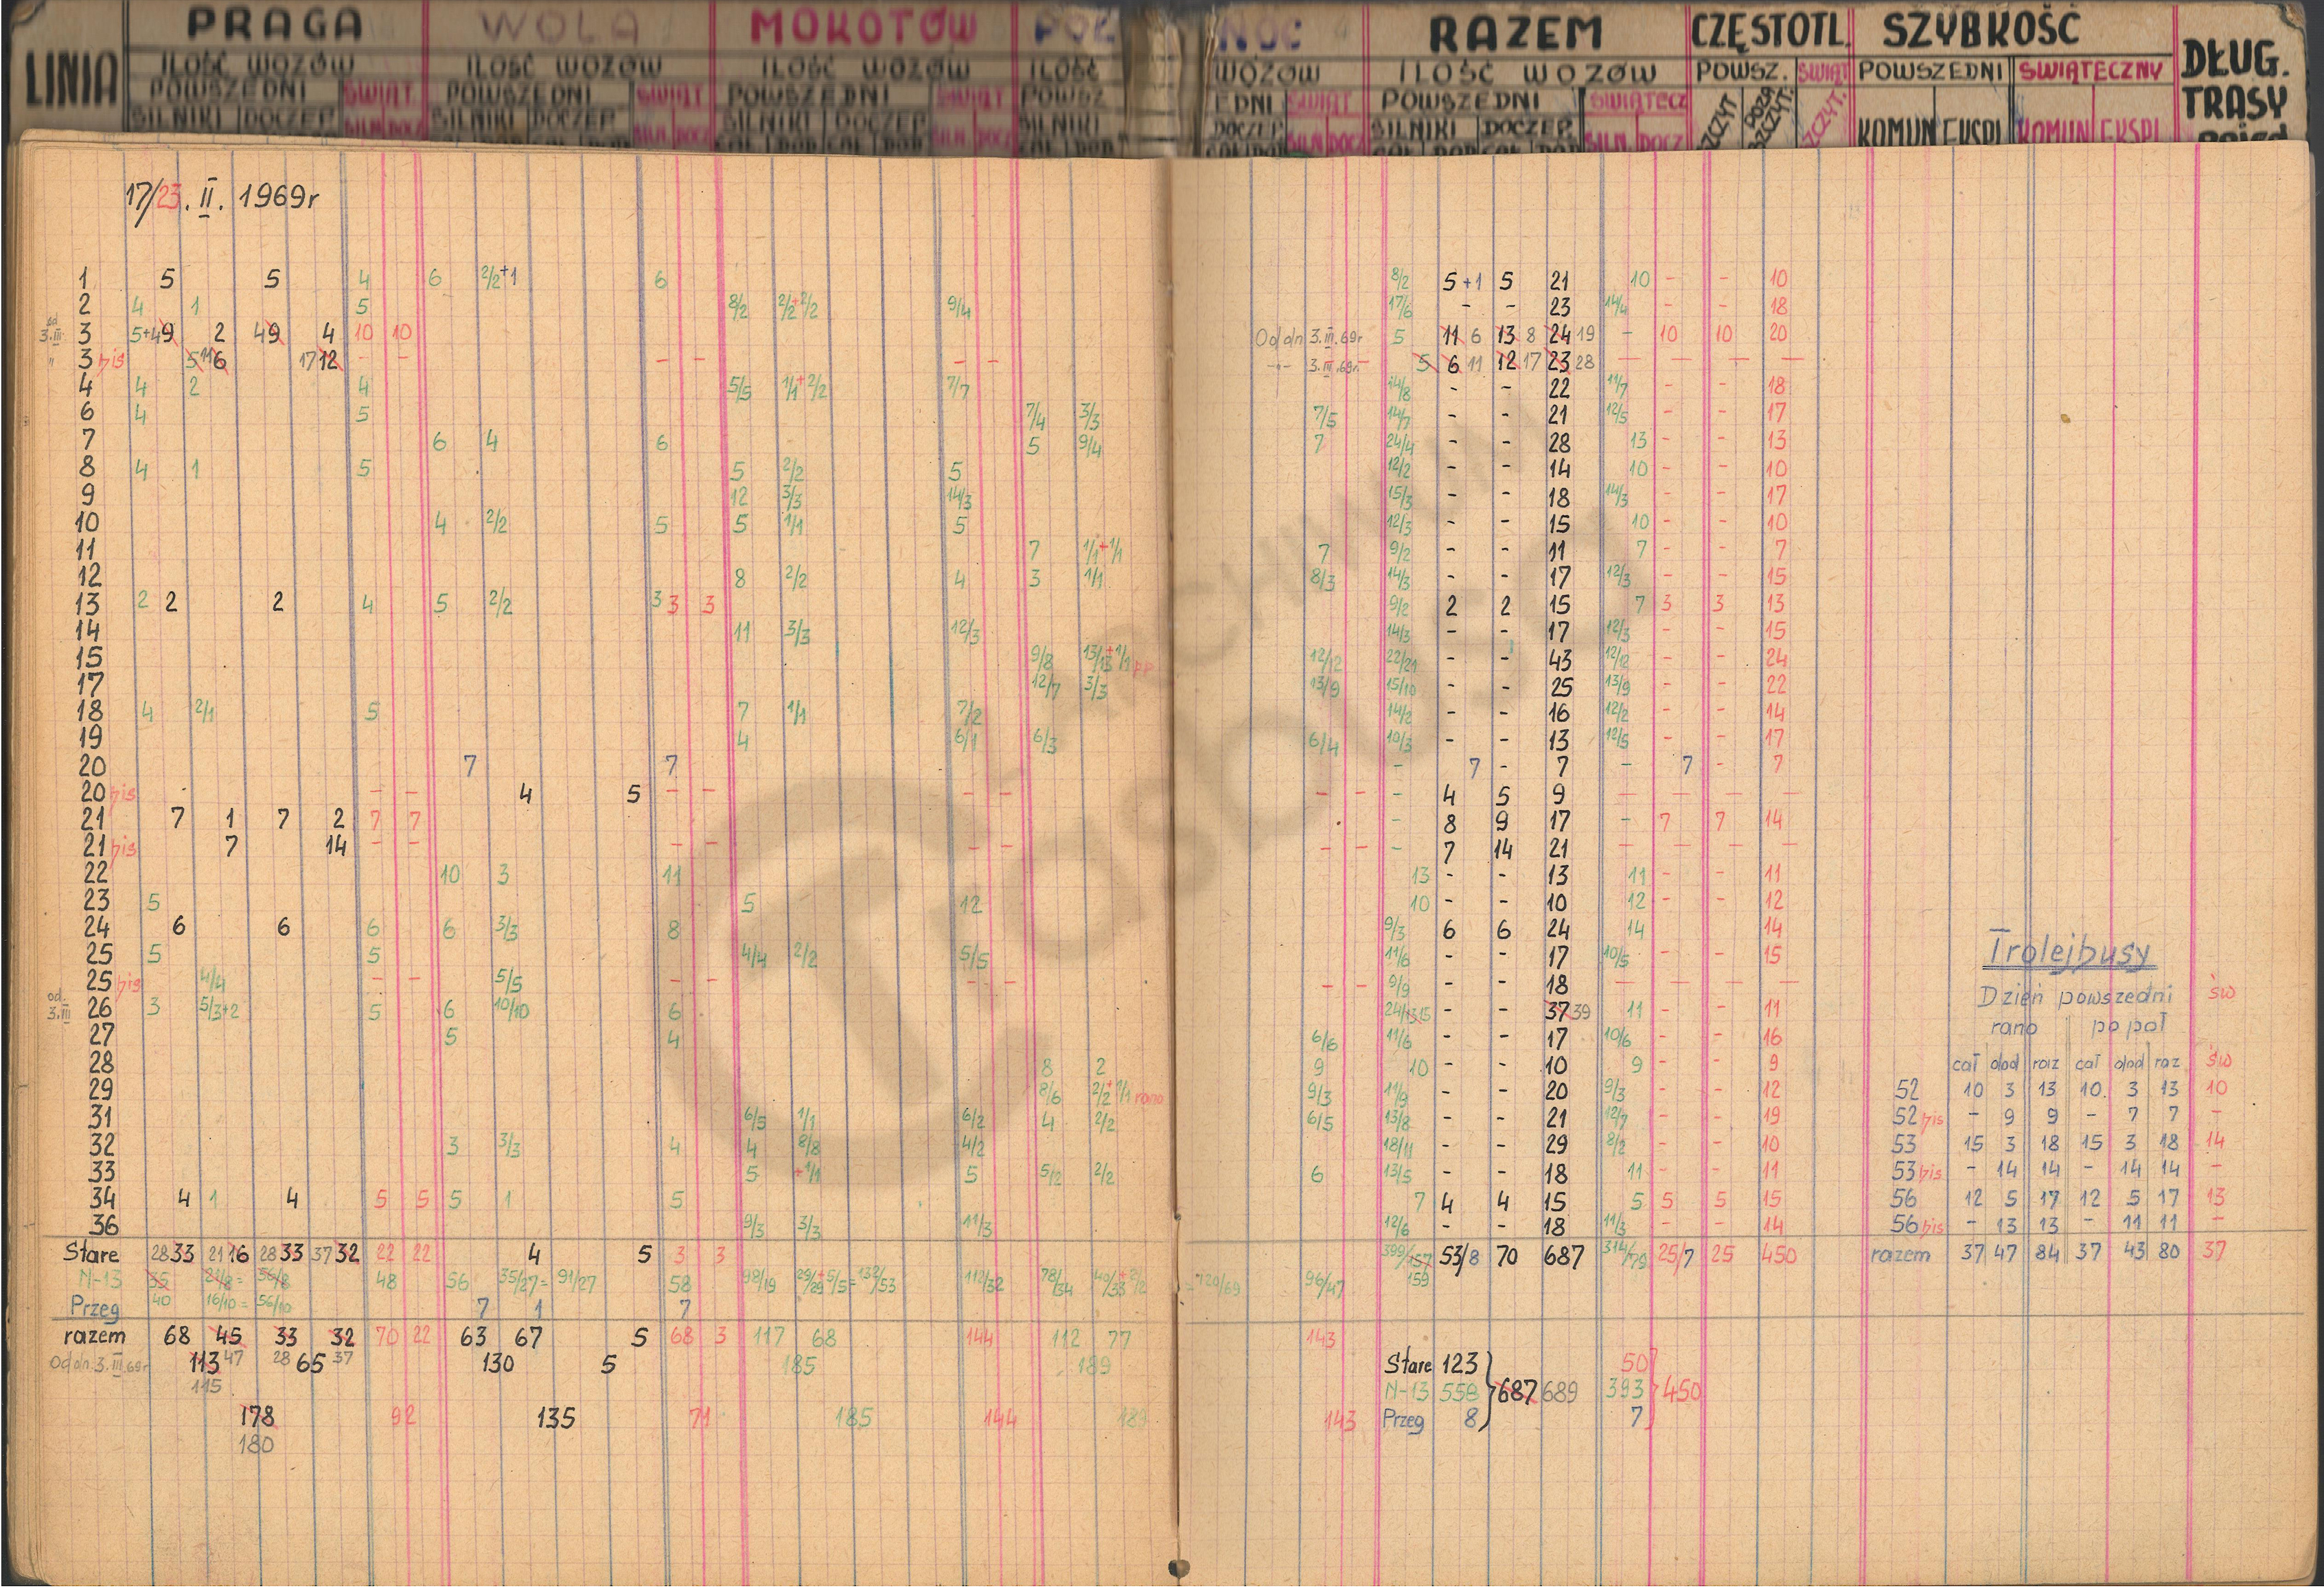 LINIA PRAGA WOLA MOKOTÓW PÓŁ NOC RAZEM CZĘSTOTL. SZYBKOŚĆ DŁUG. TRASY
ILOŚĆ WOZÓW ILOŚĆ WOZÓW ILOŚĆ WOZÓW ILOŚĆ WOZÓW ILOŚĆ WOZÓW POWSZ. ŚWIĄT POWSZEDNI ŚWIĄTECZNY
POWSZEDNI ŚWIĄT. POWSZEDNI ŚWIĄT POWSZEDNI ŚWIĄT POWSZ EDNI ŚWIĄT POWSZEDNI ŚWIĄTECZ SZCZYT POZA SZCZYT. SZCZYT.
SILNIKI DOCZEP. SILN. DOCZ SILNIKI DOCZEP. SILN. DOCZ SILNIKI DOCZEP SILN. DOCZ SILNIKI DOCZEP SILN. DOCZ SILNIKI DOCZEP. SILN. DOCZ KOMUN EKSPL KOMUN EKSPL
17/23. II. 1969r
1 5 5 4 6 2/2+1 6 8/2 5 +1 5 21 10 - - 10
2 4 1 5 8/2 2/2+2/2 9/4 17/6 - - 23 14/4 - - 18
od 3.III. 3 5+4 9 2 4 9 4 10 10 Od dn 3.III.69r 5 11 6 13 8 24 19 - 10 10 20
" 3 bis 5 11 6 17 12 - - - - - - -"- 3.III.69r - 5 6 11 12 17 23 28 - - - -
4 4 2 4 5/5 1/1+2/2 7/7 14/8 - - 22 11/7 - - 18
6 4 5 7/4 3/3 7/5 14/7 - - 21 12/5 - - 17
7 6 4 6 5 9/4 7 24/4 - - 28 13 - - 13
8 4 1 5 5 2/2 5 12/2 - - 14 10 - - 10
9 12 3/3 14/3 15/3 - - 18 14/3 - - 17
10 4 2/2 5 5 1/1 5 12/3 - - 15 10 - - 10
11 7 1/1+1/1 7 9/2 - - 11 7 - - 7
12 8 2/2 4 3 1/1 8/3 14/3 - - 17 12/3 - - 15
13 2 2 2 4 5 2/2 3 3 3 9/2 2 2 15 7 3 3 13
14 11 3/3 12/3 14/3 - - 17 12/3 - - 15
15 9/8 13/13+1/1 pp 12/12 22/21 - - 43 12/12 - - 24
17 12/7 3/3 13/9 15/10 - - 25 13/9 - - 22
18 4 2/1 5 7 1/1 7/2 14/2 - - 16 12/2 - - 14
19 4 6/1 6/3 6/4 10/3 - - 13 12/5 - - 17
20 7 7 - 7 - 7 - 7 - 7
20 bis - - 4 5 - - - - - - - 4 5 9 - - - -
21 7 1 7 2 7 7 - 8 9 17 - 7 7 14
21 bis 7 14 - - - - - - - - - 7 14 21 - - - -
22 10 3 11 13 - - 13 11 - - 11
23 5 5 12 10 - - 10 12 - - 12
24 6 6 6 6 3/3 8 9/3 6 6 24 14 14
25 5 5 4/4 2/2 5/5 11/6 - - 17 10/5 - - 15
25 bis 4/4 - - 5/5 - - - - - - 9/9 - - 18 - - - -
od. 3.III 26 3 5/3+2 5 6 10/10 6 24/13 15 - - 37 39 11 - - 11
27 5 4 6/6 11/6 - - 17 10/6 - - 16
28 8 2 9 10 - - 10 9 - - 9
29 8/6 2/2+1/1 rano 9/3 11/9 - - 20 9/3 - - 12
31 6/5 1/1 6/2 4 2/2 6/5 13/8 - - 21 12/7 - - 19
32 3 3/3 4 4 8/8 4/2 18/11 - - 29 8/2 - - 10
33 5 +1/1 5 5/2 2/2 6 13/5 - - 18 11 - - 11
34 4 1 4 5 5 5 1 5 7 4 4 15 5 5 5 15
36 9/3 3/3 11/3 12/6 - - 18 11/3 - - 14
Stare 28 33 21 16 28 33 37 32 22 22 4 5 3 3 399/157 53/8 70 687 314/79 25/7 25 450
N-13 55 21/8 = 56/8 48 56 35/27 = 91/27 58 98/19 29/29+5/5 = 132/53 112/32 78/34 40/33+2/2 = 120/69 96/47 159
Przeg 40 16/10 = 56/10 7 1 7
razem 68 45 33 32 70 22 63 67 5 68 3 117 68 144 112 77 143
Od dn. 3.III.69r 113 47 28 65 37 130 5 185 189
115
178 92 135 71 185 144 189 143
180
Stare 123 50
N-13 558 687 689 393 450
Przeg 8 7
Trolejbusy
Dzień powszedni św
rano po poł
cał dod raz cał dod raz św
52 10 3 13 10. 3 13 10
52 bis - 9 9 - 7 7 -
53 15 3 18 15 3 18 14
53 bis - 14 14 - 14 14 -
56 12 5 17 12 5 17 13
56 bis - 13 13 - 11 11 -
razem 37 47 84 37 43 80 37